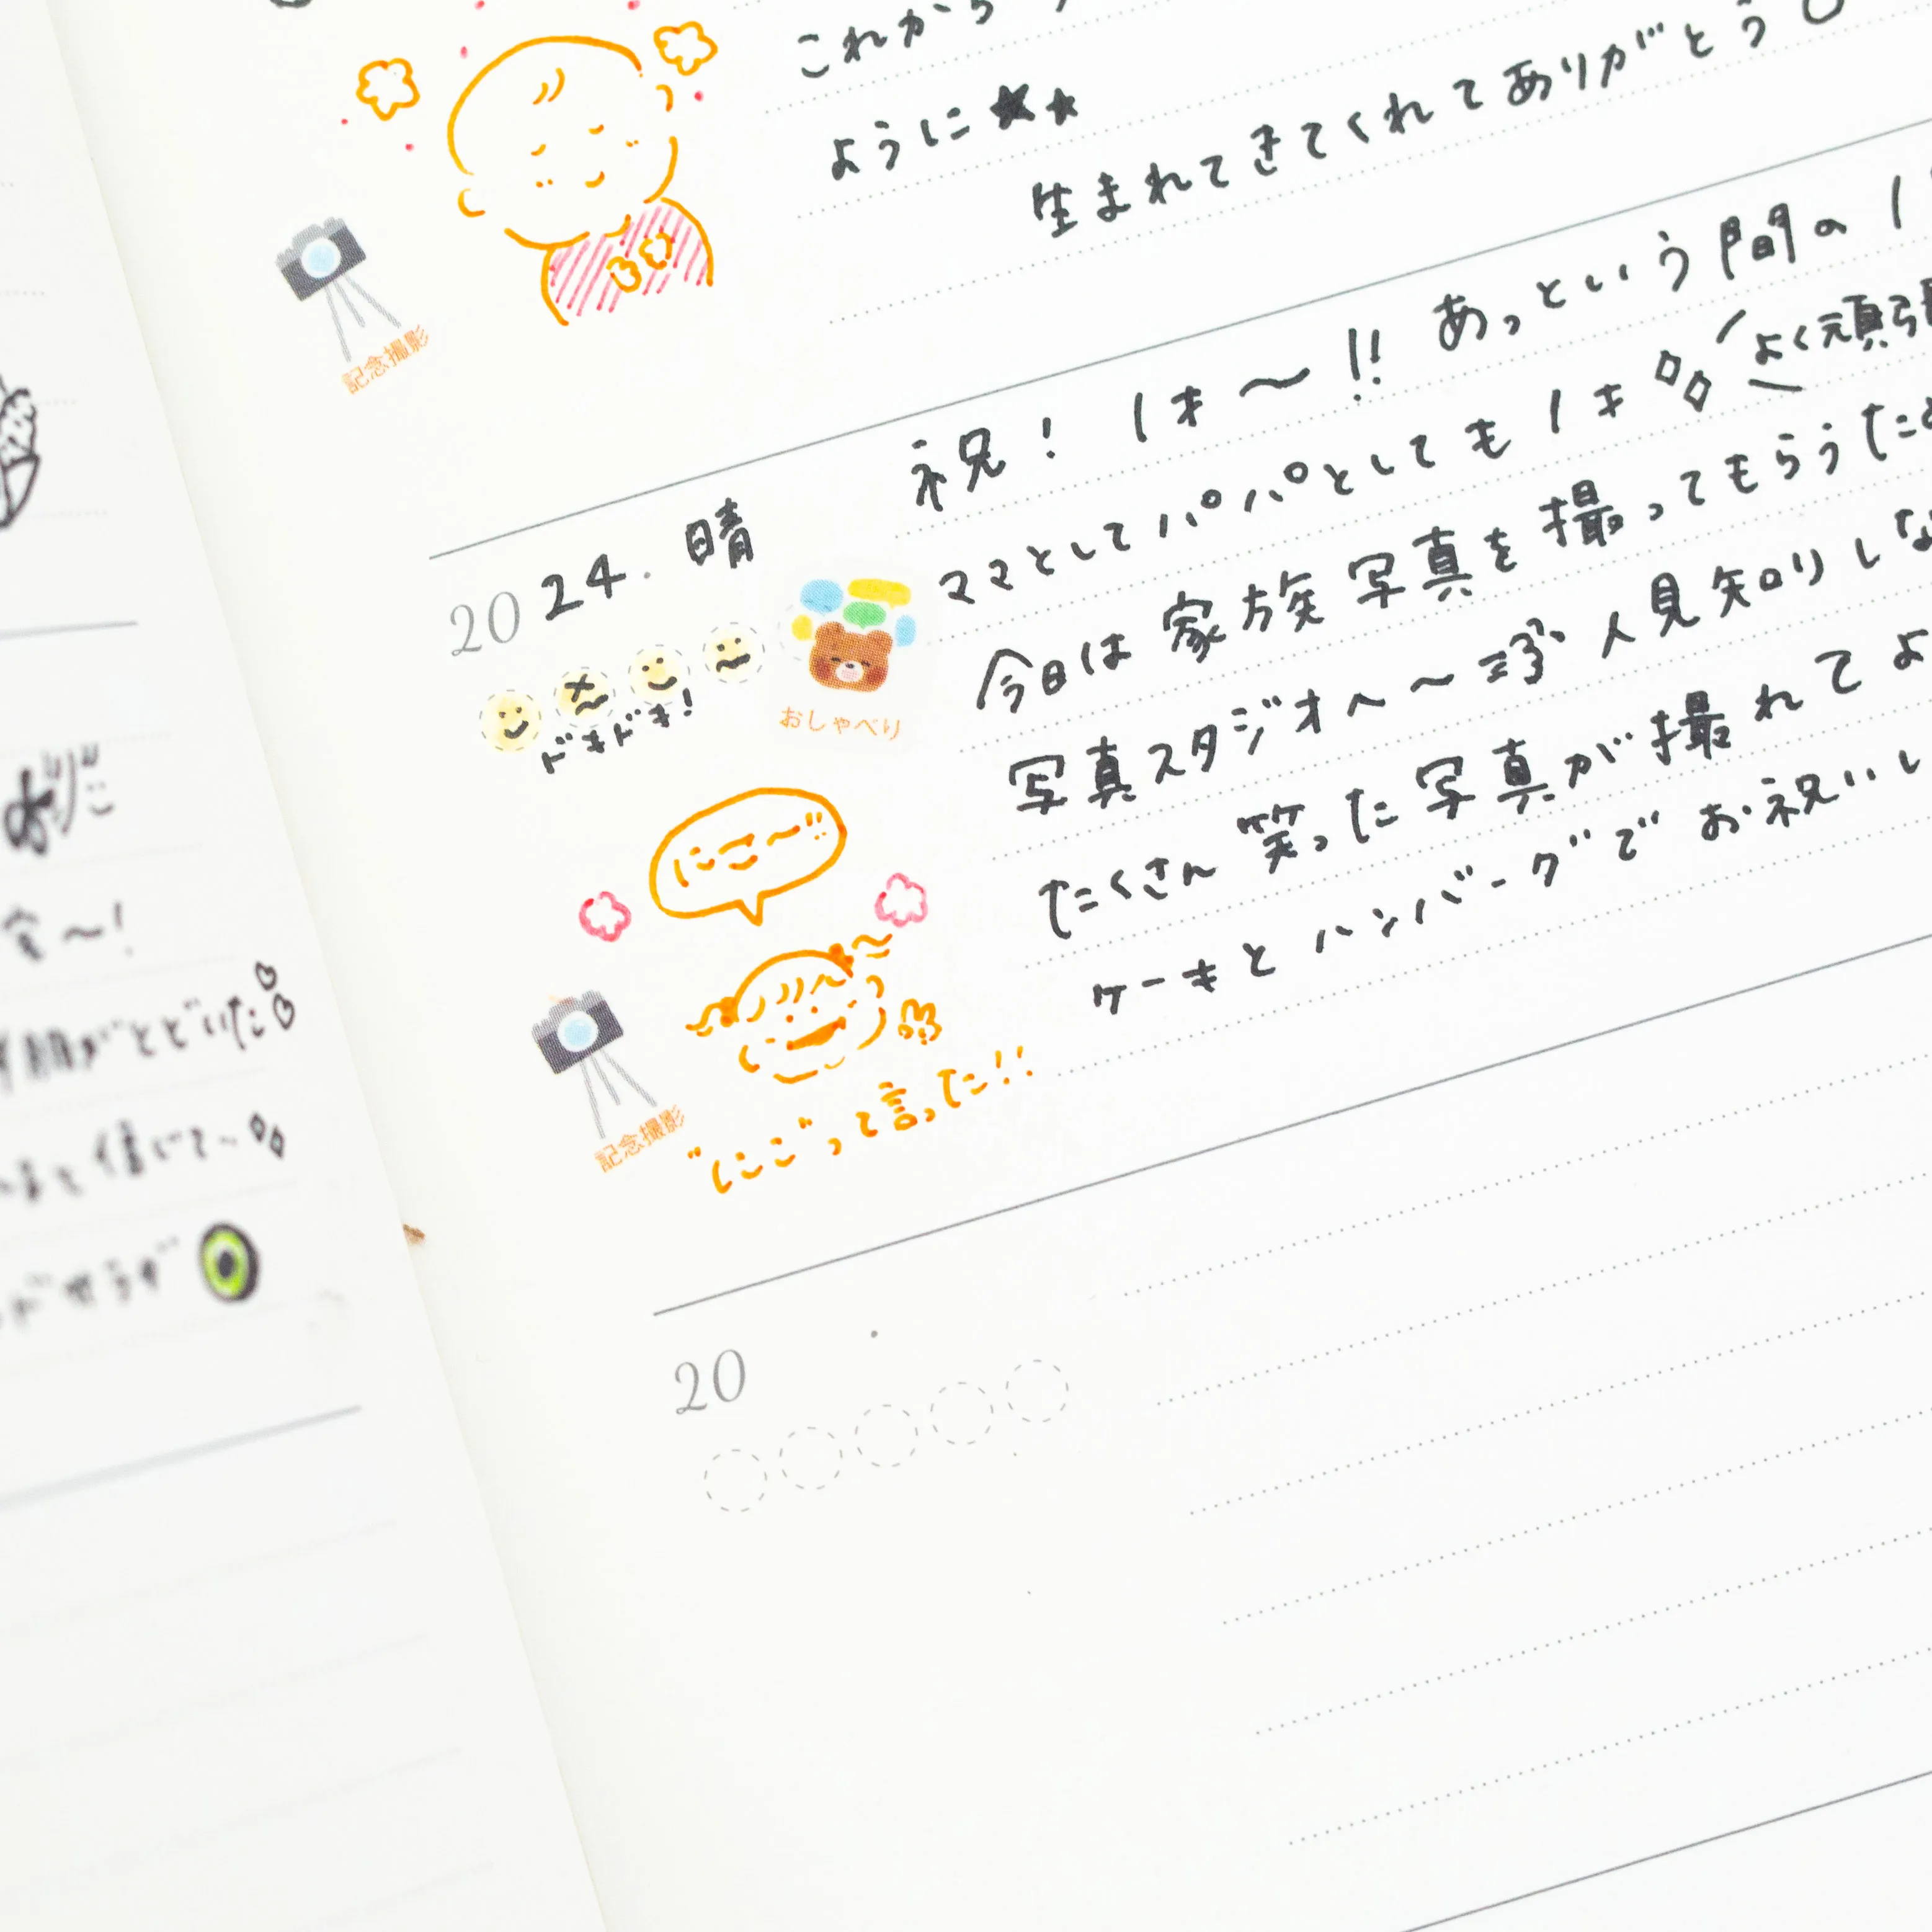 これから
ように★★
生まれてきてくれてありがとう
記念撮影
祝! 1才〜!! あっという間の1
ママとしてパパとしても1才 よく頑張
2024. 晴
今日は家族写真を撮ってもらうため
写真スタジオへ〜 人見知りしな
たくさん笑った写真が撮れてよ
ケーキとハンバーグでお祝いし
ドキドキ!
おしゃべり
にこ〜!!
記念撮影
"にこ"って言った!!
20
がとどいた
と信じて〜